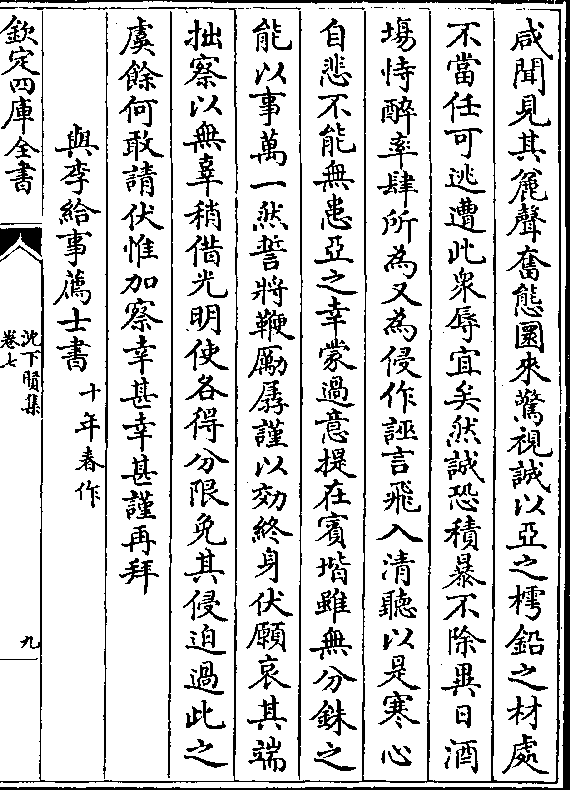 咸聞見其麄聲奮態圜來驚視誠以亞之樗鉛之材處
不當任可逃遭此衆辱宜矣然誠恐積暴不除異日酒
塲恃醉率肆所為又為侵作誣言飛入清聽以是寒心
自悲不能無恚亞之幸蒙過意提在賓堦雖無分銖之
能以事萬一然誓將鞭勵孱謹以効終身伏願哀其端
拙察以無辜稍借光明使各得分限免其侵迫過此之
虞餘何敢請伏惟加察幸甚幸甚謹再拜
與李給事薦士書十年春作
欽定四庫全書
沈下賢集
卷七
九